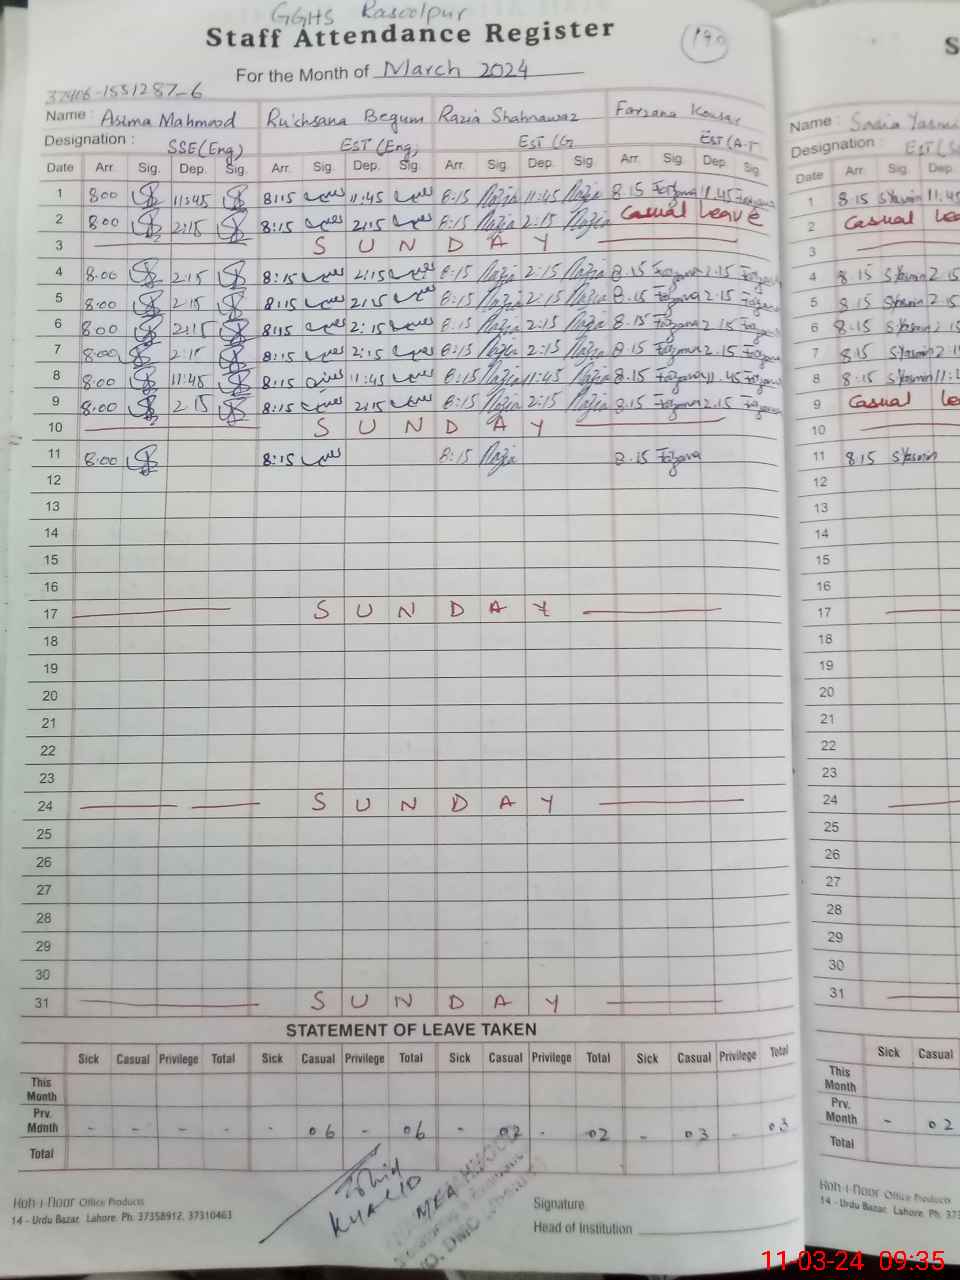 GGHS Rasoolpur
Staff Attendance Register
190
For the Month of March 2024
Name : Asima Mahmood Rukhsana Begum Razia Shahnawaz Farzana Kousar
Designation : SSE (Eng) EST (Eng) EST (G EST (A-T
Date Arr. Sig. Dep. Sig. Arr. Sig. Dep. Sig. Arr. Sig. Dep. Sig Arr. Sig. Dep. Sig
1 8:00 11:45 8:15 11:45 8:15 Razia 11:45 Razia 8.15 Farzana 11.45 Farzana
2 8:00 2:15 8:15 2:15 8:15 Razia 2:15 Razia Casual leave
3 S U N D A Y
4 8:00 2:15 8:15 2:15 8:15 Razia 2:15 Razia 8.15 Farzana 2.15 Farzana
5 8:00 2:15 8:15 2:15 8:15 Razia 2:15 Razia 8.15 Farzana 2.15 Farzana
6 8:00 2:15 8:15 2:15 8:15 Razia 2:15 Razia 8.15 Farzana 2.15 Farzana
7 8:00 2:15 8:15 2:15 8:15 Razia 2:15 Razia 8.15 Farzana 2.15 Farzana
8 8:00 11:45 8:15 11:45 8:15 Razia 11:45 Razia 8.15 Farzana 11.45 Farzana
9 8:00 2:15 8:15 2:15 8:15 Razia 2:15 Razia 8.15 Farzana 2.15 Farzana
10 S U N D A Y
11 8:00 8:15 8:15 Razia 8.15 Farzana
12
13
14
15
16
17 S U N D A Y
18
19
20
21
22
23
24 S U N D A Y
25
26
27
28
29
30
31 S U N D A Y
STATEMENT OF LEAVE TAKEN
Sick Casual Privilege Total Sick Casual Privilege Total Sick Casual Privilege Total Sick Casual Privilege Total
This Month
Prv. Month - - - - - 06 - 06 - 02 - 02 - 03 - 03
Total
KHALID
MEA
Signature
Head of Institution
Hoh-i-Noor Office Products
14 - Urdu Bazar, Lahore. Ph. 37358912, 37310463
S
Name : Sadia Yasmi
Designation : EST (S
Date Arr. Sig. Dep.
1 8.15 SYasmin 11:45
2 Casual Le
3
4 8.15 SYasmin 2.15
5 8.15 SYasmin 2.15
6 8.15 SYasmin 2.15
7 8.15 SYasmin 2.1
8 8.15 SYasmin 11:4
9 Casual le
10
11 8.15 SYasmin
12
13
14
15
16
17
18
19
20
21
22
23
24
25
26
27
28
29
30
31
Sick Casual
This Month
Prv. Month - 02
Total
Hoh-i-Noor Office Products
14 - Urdu Bazar, Lahore. Ph. 373
11-03-24 09:35